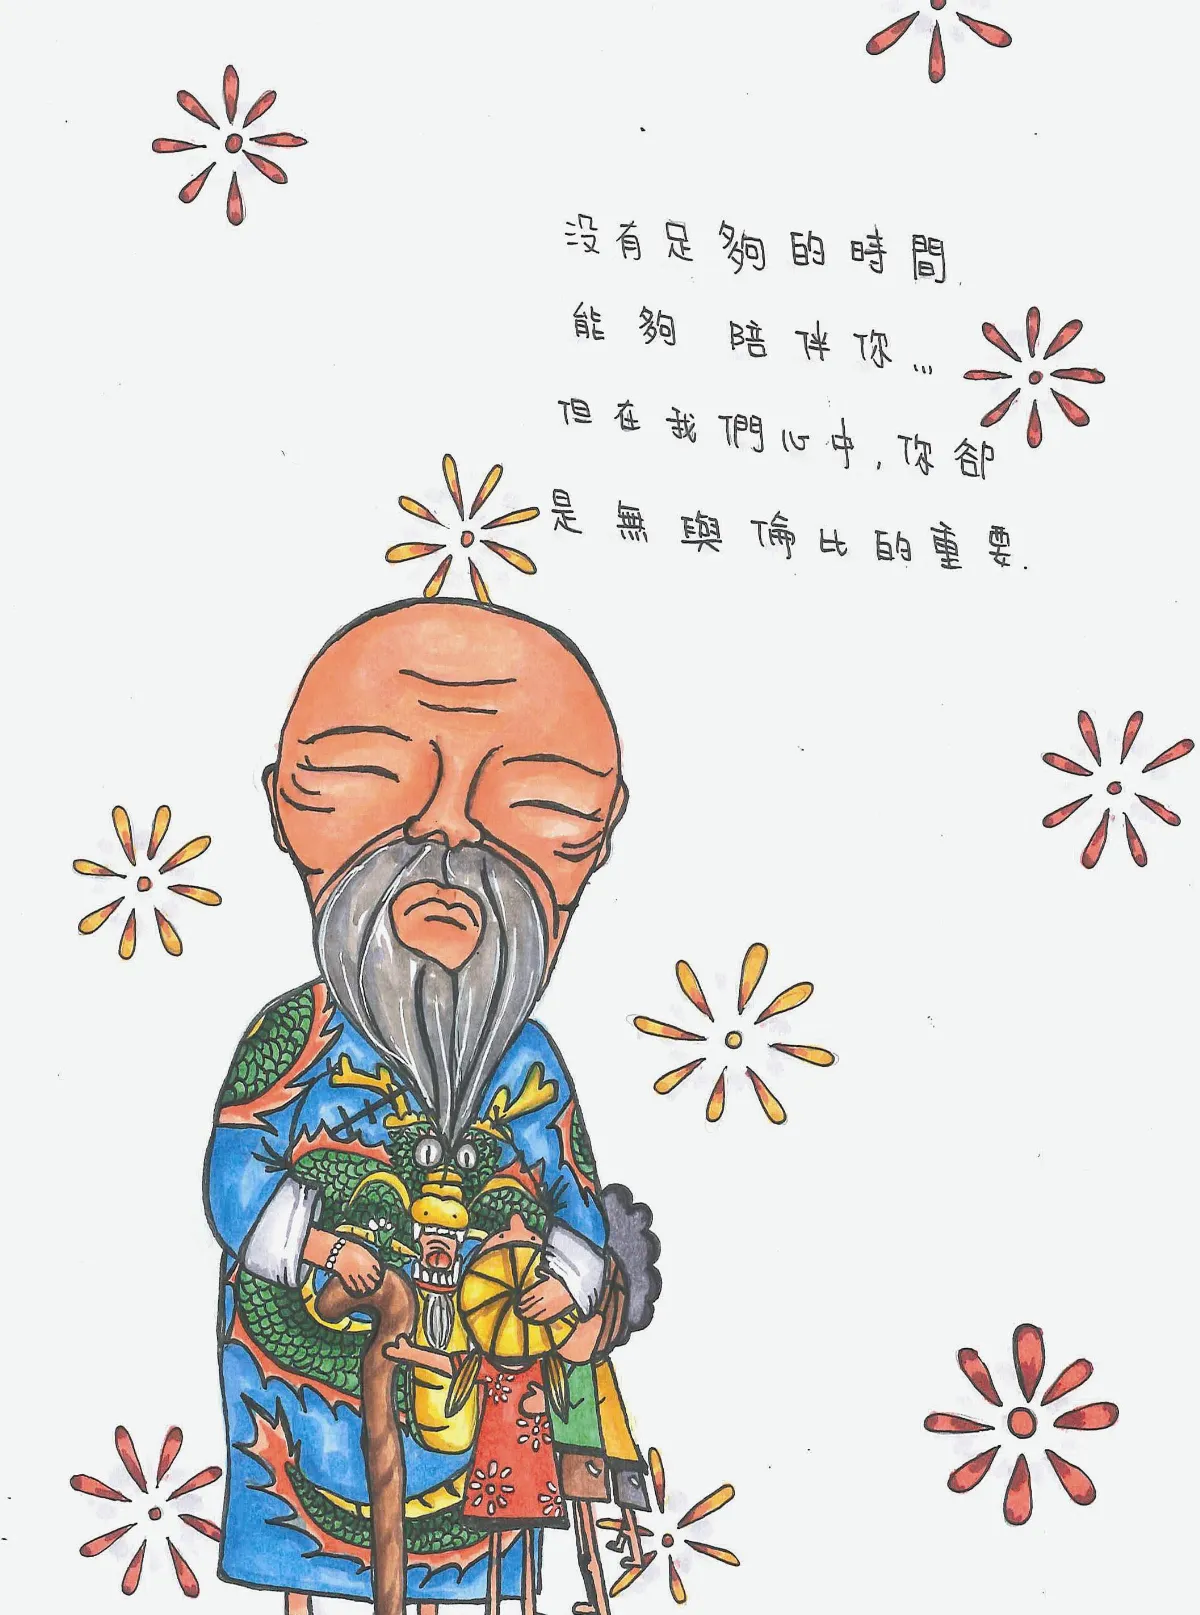 没有足夠的時間.
能夠陪伴你...
但在我們心中,你卻
是無與倫比的重要.